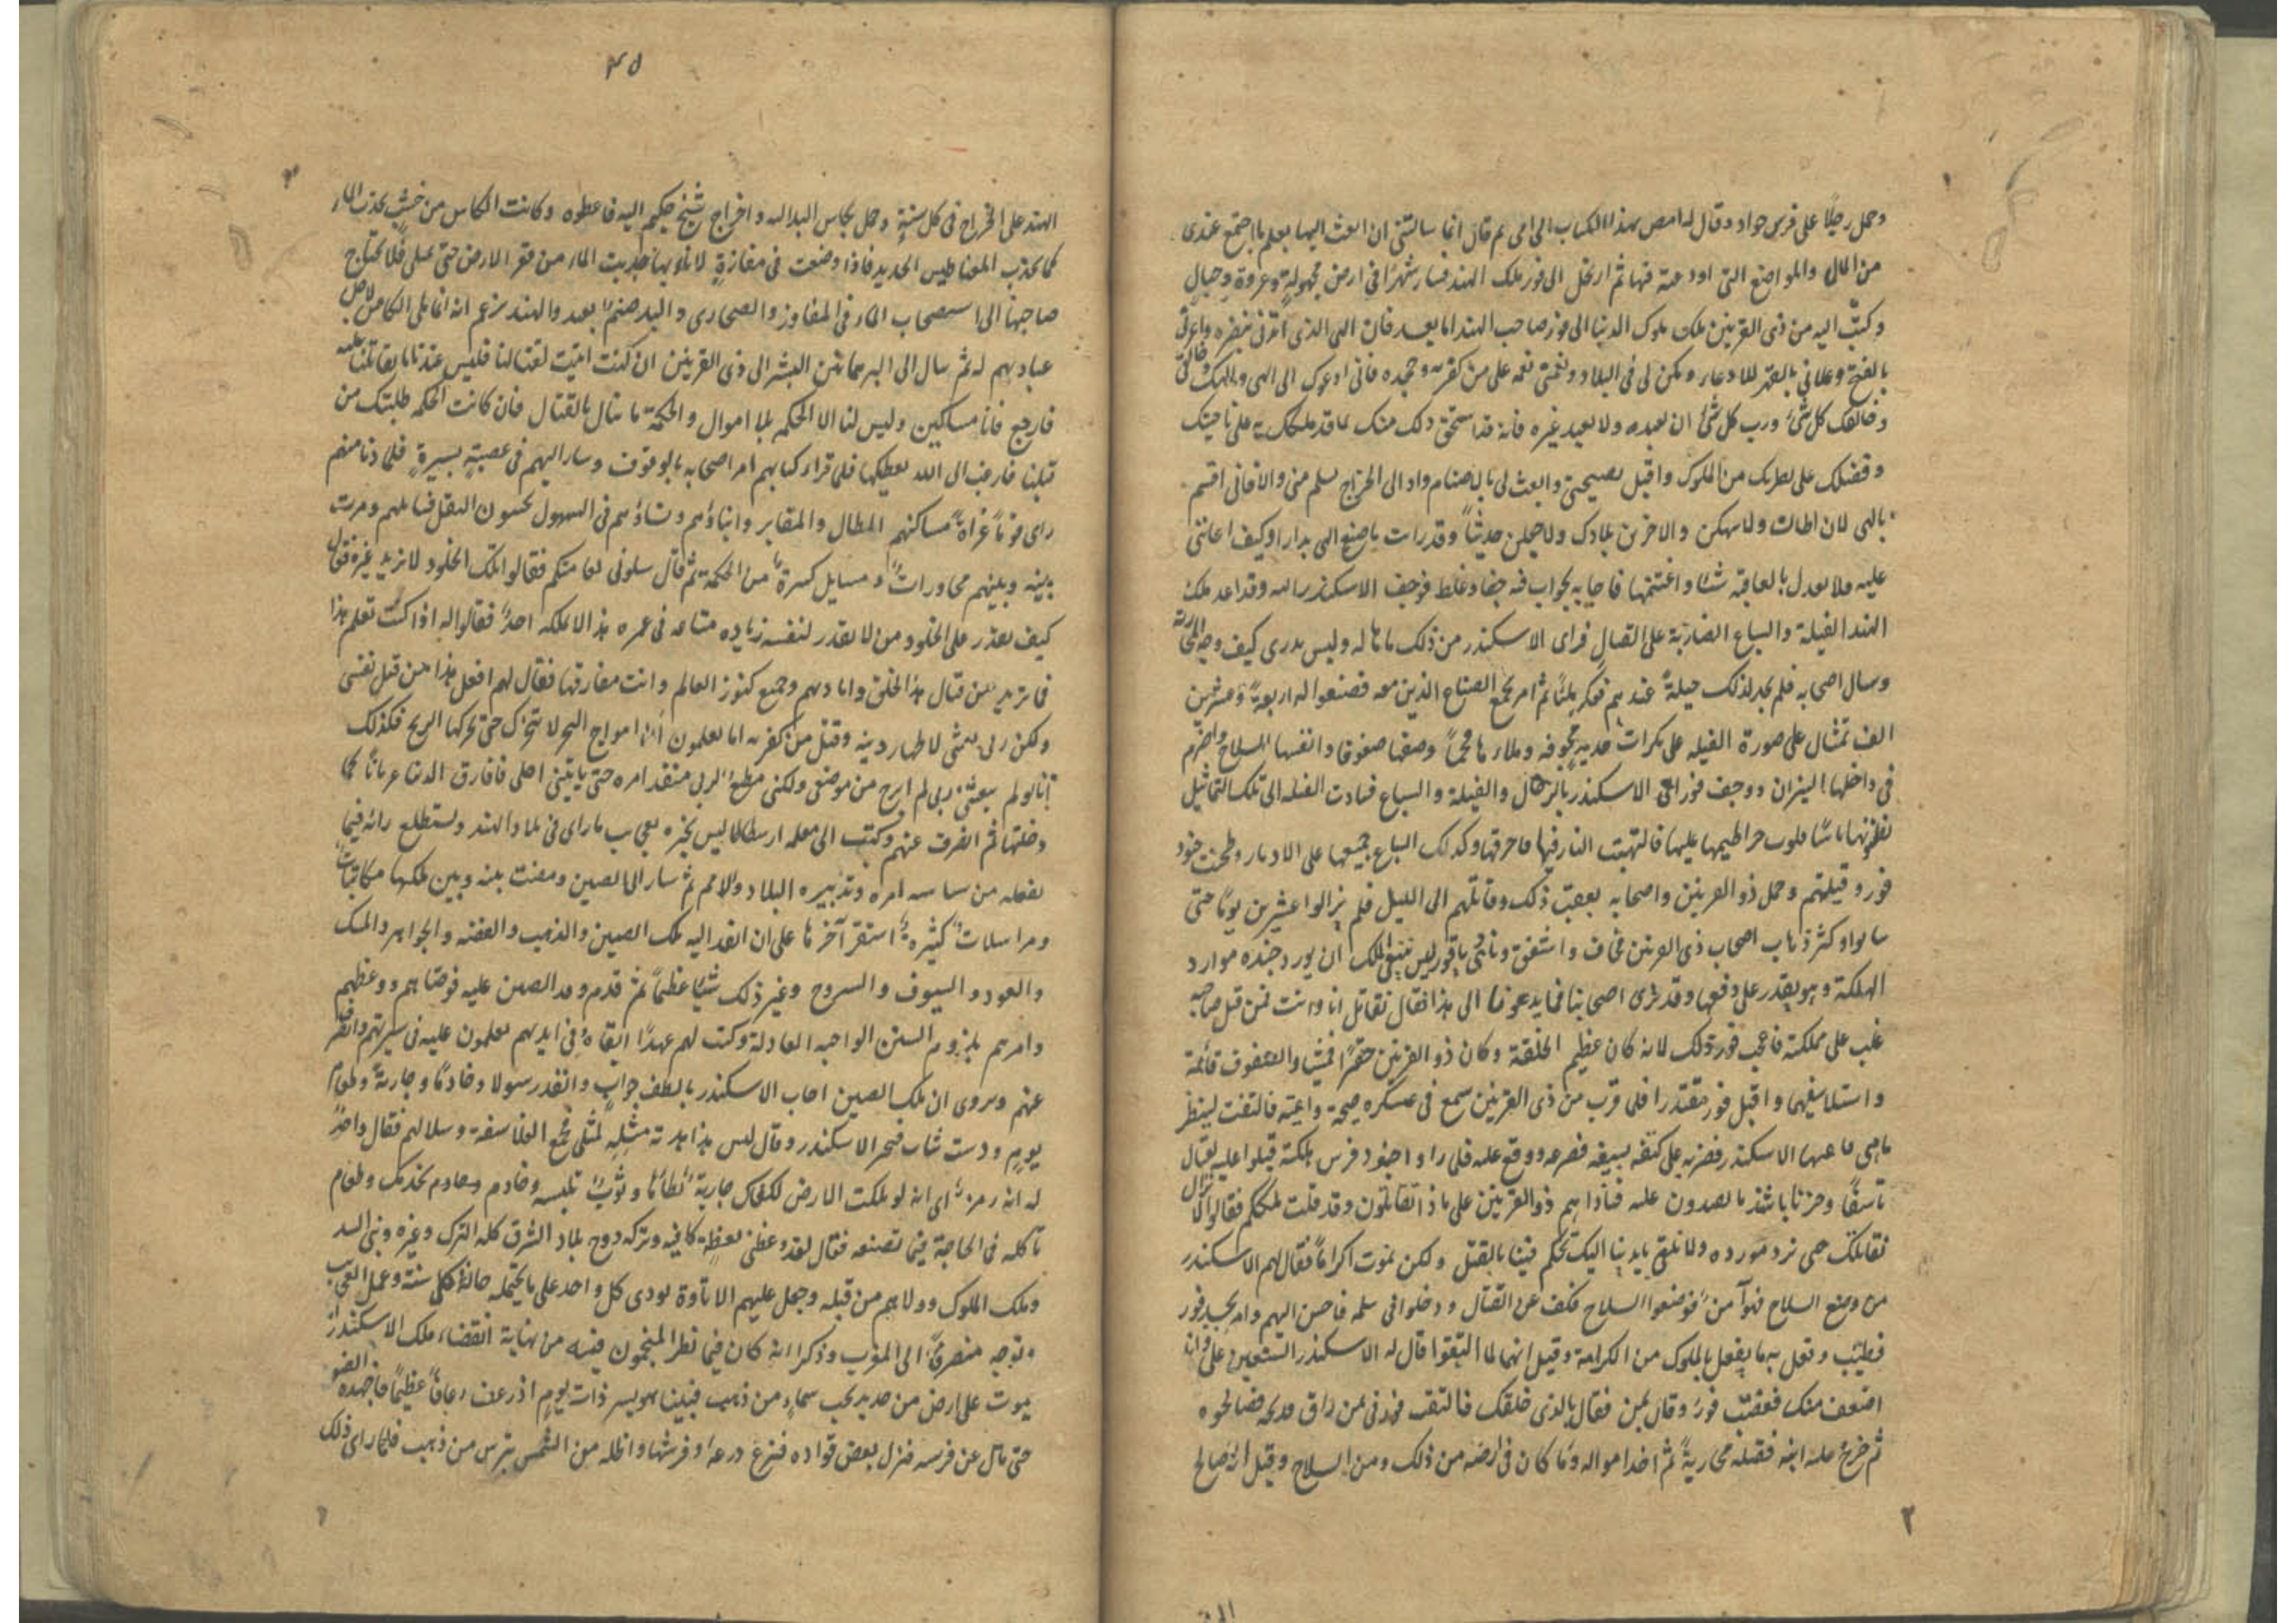 وحمل رجلًا على فرس جواد وقال له امض بهذا الكتاب الى امى ثم قال انما سالتنى ان ابعث اليها بعلم ما اجتمع عندى
من المال والمواضع التى اودعته فيها ثم ارتحل الى فور ملك الهند فسار شهرًا فى ارض مجهولة وعرة وجبال
وكتب اليه من ذى القرنين ملك ملوك الدنيا الى فور صاحب الهند اما بعد فان الهى الذى ايدنى بنصره واعزنى
بالفتح وعلانى بالقهر للاعداء ومكن لى فى البلاد ونقمتى نقمة على من كفر به وجحده فانى ادعوك الى الهى والهك وخالقى
وخالقك كل شئ ورب كل شئ ان تعبده ولا تعبد غيره فانه قد استحق ذلك منك بما قد ملكك به على ناحيتك
وفضلك على نظرائك من الملوك واقبل نصيحتى وابعث لى بالاصنام واد الى الخراج تسلم منى والا فانى اقسم
بالهى لان اطات ولا سهكن والاخربن بلادك ولاجعلن حديثًا وقد رايت ما صنع الهى بدارا وكيف اعاننى
عليه فلا تعدل بالعافية شئا واغتنمها فاجابه بجواب فيه جفا وغلظ فوجف الاسكندر اليه وقد اعد ملك
الهند الفيلة والسباع الضارية على القتال فراى الاسكندر من ذلك ما هاله وليس يدرى كيف وجه المحاربة
وسال اصحابه فلم يجد لذلك حيلة عندهم ففكر مليًا ثم امر بجمع الصناع الذين معه فصنعوا له اربعة وعشرين
الف تمثال على صورة الفيلة على بكرات حديد مجوفة وملاءها فحمًا وصفها صفوفا والبسها السلاح واضرم
فى داخلها النيران ووجف فور الى الاسكندر بالرجال والفيلة والسباع فبادت الفيلة الى تلك التماثيل
تظن انها ناسًا فلوت خراطيمها عليها فالتهبت النار فيها فاحرقتها وكذلك السباع جميعها على الادبار وطحنت جنود
فور وقيلتهم وحمل ذو القرنين واصحابه بعقب ذلك وقاتلهم الى الليل فلم يزالوا عشرين يومًا حتى
سالوا وكثر ذهاب اصحاب ذى القرنين فخاف واشفق ونادى يا فور ليس ينبغى للملك ان يورد جنده موارد
الهلكة وهو يقدر على دفعها وقد ترى اصحابنا فما يدعونا الى هذا فقال نقاتل انا وانت فمن قتل صاحبه
غلب على مملكته فاعجب فور ذلك لانه كان عظيم الخلقة وكان ذو القرنين حقيرًا فمشيا والصفوف قائمة
واستلا سيفيهما واقبل فور مقتدرا فلما قرب من ذى القرنين سمع فى عسكره صيحة راعته فالتفت لينظر
ما هى فاعتنمها الاسكندر فضربه على كتفه بسيفه فصرعه ووقع عليه فلما راوا جنود فرس هلكته قبلوا عليه بقتال
تاسفًا وحزنا باشد ما يصدون عليه فناداهم ذو القرنين على ماذا تقاتلون وقد قتلت ملككم فقالوا لا نزال
نقاتلك حتى نرد مورده ولا نلقى بايدينا اليك تحكم فينا بالقتل ولكن نموت اكرامًا فقال لهم الاسكندر
من وضع السلاح فهو آمن فوضعوا السلاح فكف عن القتال ودخلوا فى سلمه فاحسن اليهم وامر بجسد فور
فطيب وفعل به ما يفعل بالملوك من الكرامة وقيل انهما لما التقوا قال له الاسكندر اتستعين على وانا
اضعف منك فغضب فور وقال بمن فقال بالذى خلفك فالتفت فور فى من راق مديحه فصالحوه
ثم خرج عليه ابنه فقتله محاربة ثم اخذ امواله وما كان فى ارضه من ذلك ومن السلاح وقيل انه صالح
٢
٣٥
الهند على الخراج فى كل سنة وحمل بكاس البد اليه واخراج شيخ حكيم اليه فاعطوه وكانت الكاس من خشب يجذب الماء
كما يجذب المغناطيس الحديد فاذا وضعت فى مفازة لا ماء بها جذبت الماء من قعر الارض حتى تمتلى فلا يحتاج
صاحبها الى استصحاب الماء فى المفاوز والصحارى والبد صنم يعبد والهند تزعم انه انما ملى الكاس لاجل
عبادتهم له ثم سال الى البرهمانيين البشر الى ذى القرنين ان كنت اتيت لقتالنا فليس عندنا ما يقاتلنا عليه
فارجع فانا مساكين وليس لنا الا الحكمة بلا اموال والحكمة ما تنال بالقتال فان كانت الحكمة طلبتك من
قبلنا فارغب الى الله يعطيكها فلما قراء كتابهم امر اصحابه بالوقوف وسار اليهم فى عصبة يسيرة فلما دنا منهم
راى قومًا عراةً مساكنهم المظال والمقابر وابناؤهم ونساؤهم فى السهول يجنون البقل فسايلهم ومرت
بينه وبينهم محاورات ومسايل كثيرة من الحكمة ثم قال سلونى لعامتكم فقالوا نسلك الخلود لا نريد غيره فقال
كيف يقدر على الخلود من لا يقدر لنفسه زيادة ساعة فى عمره هذا لا يملكه احد فقالوا له اذا كنت تعلم هذا
فما تريد من قتال هذا الخلق وابادتهم وجمع كنوز العالم وانت مفارقها فقال لهم افعل هذا من قبل نفسى
ولكن ربى بعثنى لاظهار دينه وقتل من كفر به اما تعلمون ان امواج البحر لا تتحرك حتى تحركها الريح فكذلك
انا لو لم يبعثنى ربى لم ابرح من موضعى ولكنى مطيع لربى منفذ امره حتى ياتينى اجلى فافارق الدنيا عريانًا كما
دخلتها ثم انصرف عنهم وكتب الى معلمه ارسطاطاليس يخبره بعجايب ما راى فى بلاد الهند ويستطلع رائه فيما
يفعله من سياسة امره وتدبيره البلاد والامم ثم سار الى الصين ومضت بينه وبين ملكها مكاتبات
ومراسلات كثيرة استقر آخرها على ان انفذ اليه ملك الصين والذهب والفضة والجواهر والمسك
والعود والسيوف والسروج وغير ذلك شئا عظيمًا ثم قدم وفد الصين عليه فوصاهم ووعظهم
وامرهم بلزوم السنن الواجبة العادلة وكتب لهم عهدًا ابقاه فى ايديهم يعلمون عليه فى سيرتهم وانصرف
عنهم ويروى ان ملك الصين اجاب الاسكندر بالطف جواب وانفذ رسولا وخادمًا وجاريةً وطعام
يوم ودست ثياب فتحير الاسكندر وقال ليس هذا هدية مثله لمثلى فجمع الفلاسفة وسالهم فقال واحدٌ
له انه رمز اى انه لو ملكت الارض لكفاك جارية تطأها وثوب تلبسه وخادم يخدمك وطعام
تاكله فى الحاجة فيما تصنعه فقال لقد وعظنى بعظة كافية وتركه ودوخ بلاد الشرق كله الترك وغيره وبنى السد
وملك الملوك وولاهم من قبله وجعل عليهم الاتاوة يودى كل واحد على ما يحتمله حاله كل سنة وعمل العجايب
وتوجه منصرفًا الى المغرب وذكرا انه كان فيما نظر المنجمون فيه من نهاية انقضاء ملك الاسكندر انه
يموت على ارض من حديد تحت سماء من ذهب فبينا هو يسير ذات يوم اذ رعف رعافًا عظيمًا فاجهده الضعف
حتى مال عن فرسه فنزل بعض قواده فنزع درعه وفرشها واظله من الشمس بترس من ذهب فلما راى ذلك